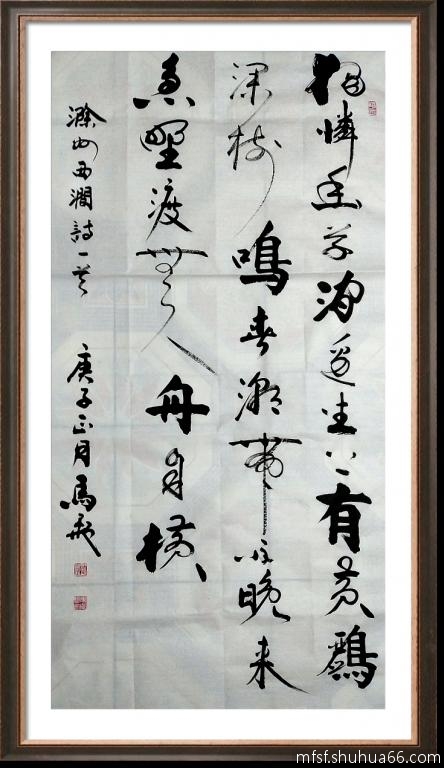 独憐幽草涧邊生上有黄鸝
深树鳴春潮帶雨晚来
急野渡無人舟自横
滁州西澗詩一首 庚子正月馬
mfsf.shuhua66.com